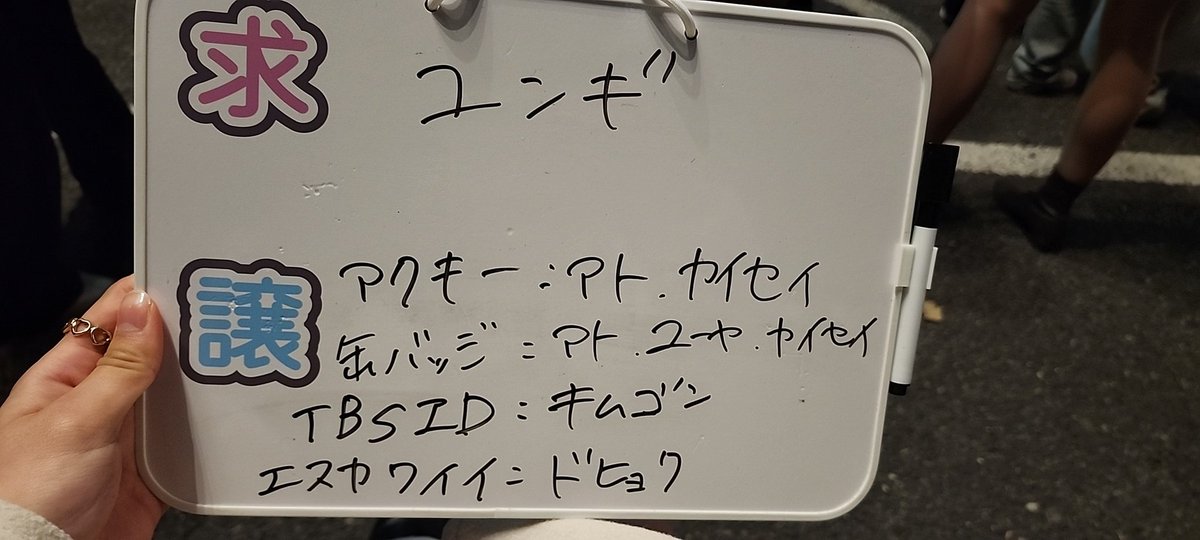 求 ユンギ
譲 アクキー:アト.カイセイ
缶バッジ:アト.ユーヤ.カイセイ
TBSID:キムゴン
エスカワイイ:ドヒョク